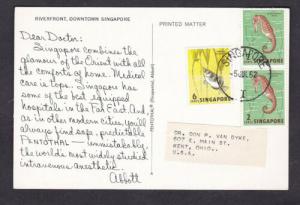 RIVERFRONT, DOWNTOWN SINGAPORE
PRINTED MATTER
Dear Doctor:
Singapore combines the
glamour of the Orient with all
the comforts of home. Medical
care is tops. Singapore has
some of the best equipped
hospitals in the Far East. And
as in other modern cities, you'll
always find safe, predictable
PENTOTHAL — unmistakably
the world's most widely studied
intravenous anesthetic.
Abbott
SINGAPORE
6
SINGAPORE
2
SINGAPORE
DR. DON P. VAN DYKE,
607 E. MAIN ST.
KENT, OHIO.
U.S.A.